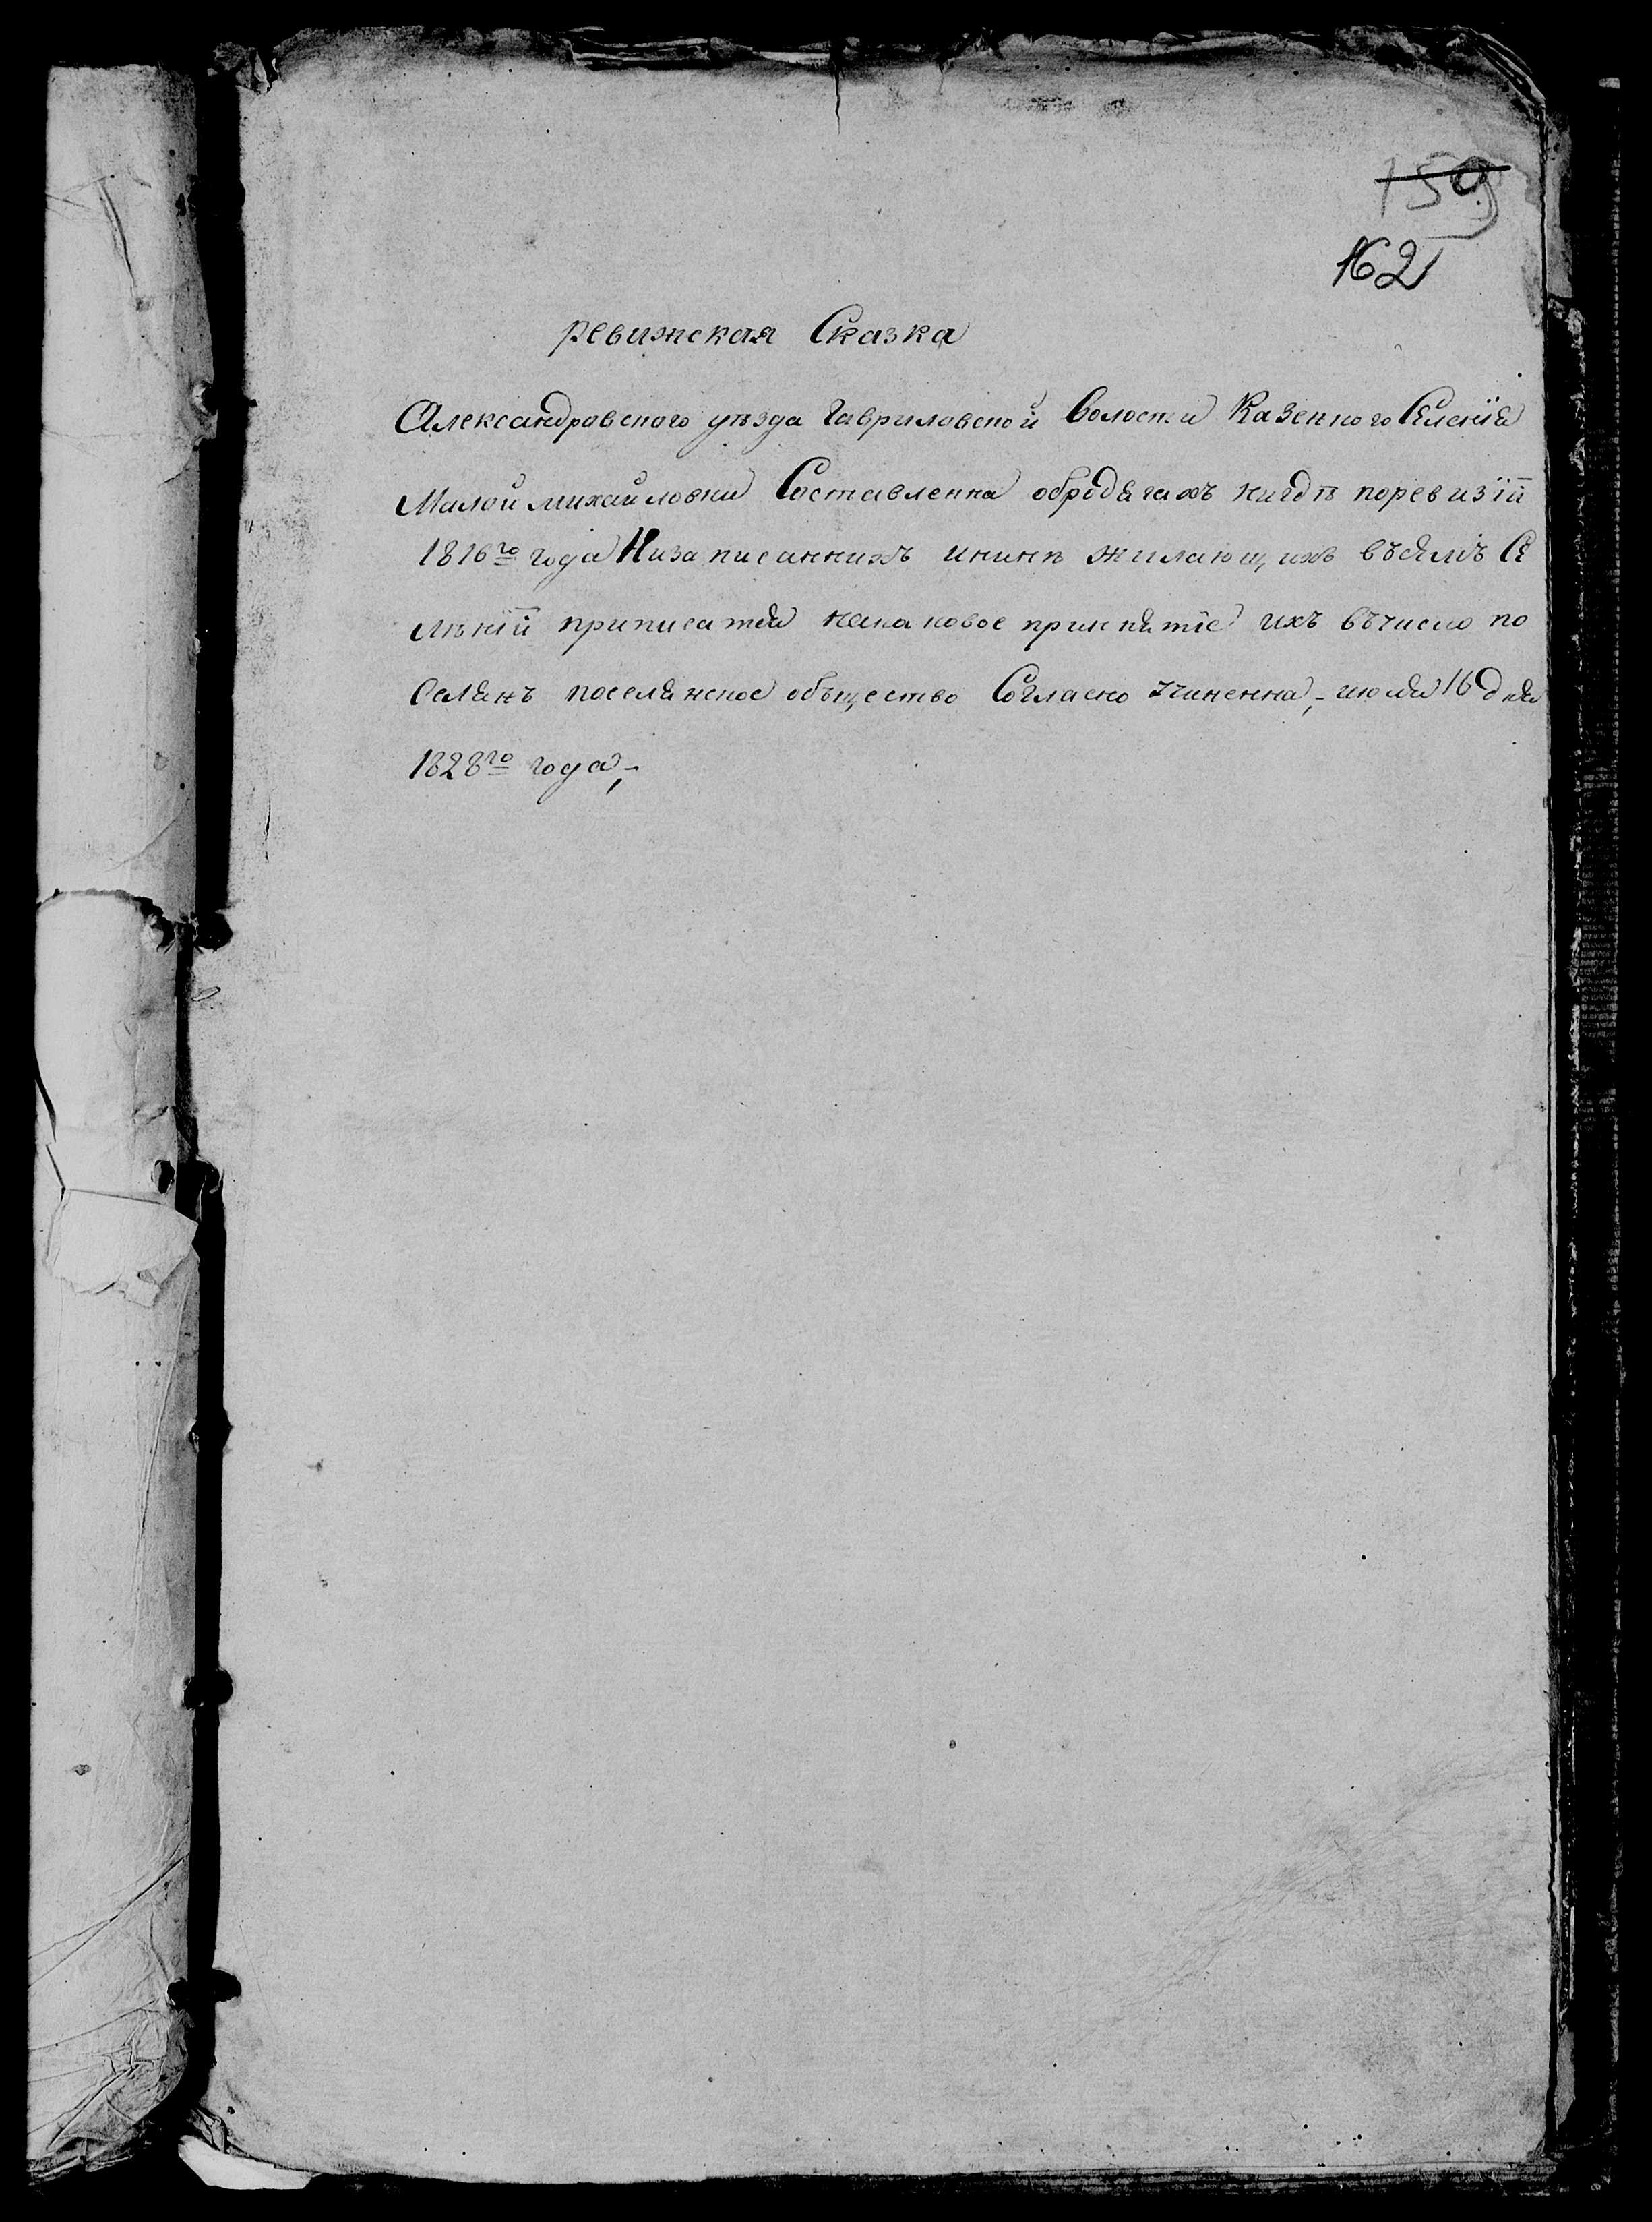 159
162
ревижская Сказка
Александровского уѣзда Гавриловской Волости Казенного Селенїя
Малой михайловки Составленна обродягахъ нигдѣ поревизїй
1816го года Низаписаннихъ инине жилающихъ въсямъ Се
лѣнїй приписатця насаново принятїе ихъ вчисло по
Селянъ поселянское обѣщество Согласно учиненна,- июля 16 дня
1828го года,-